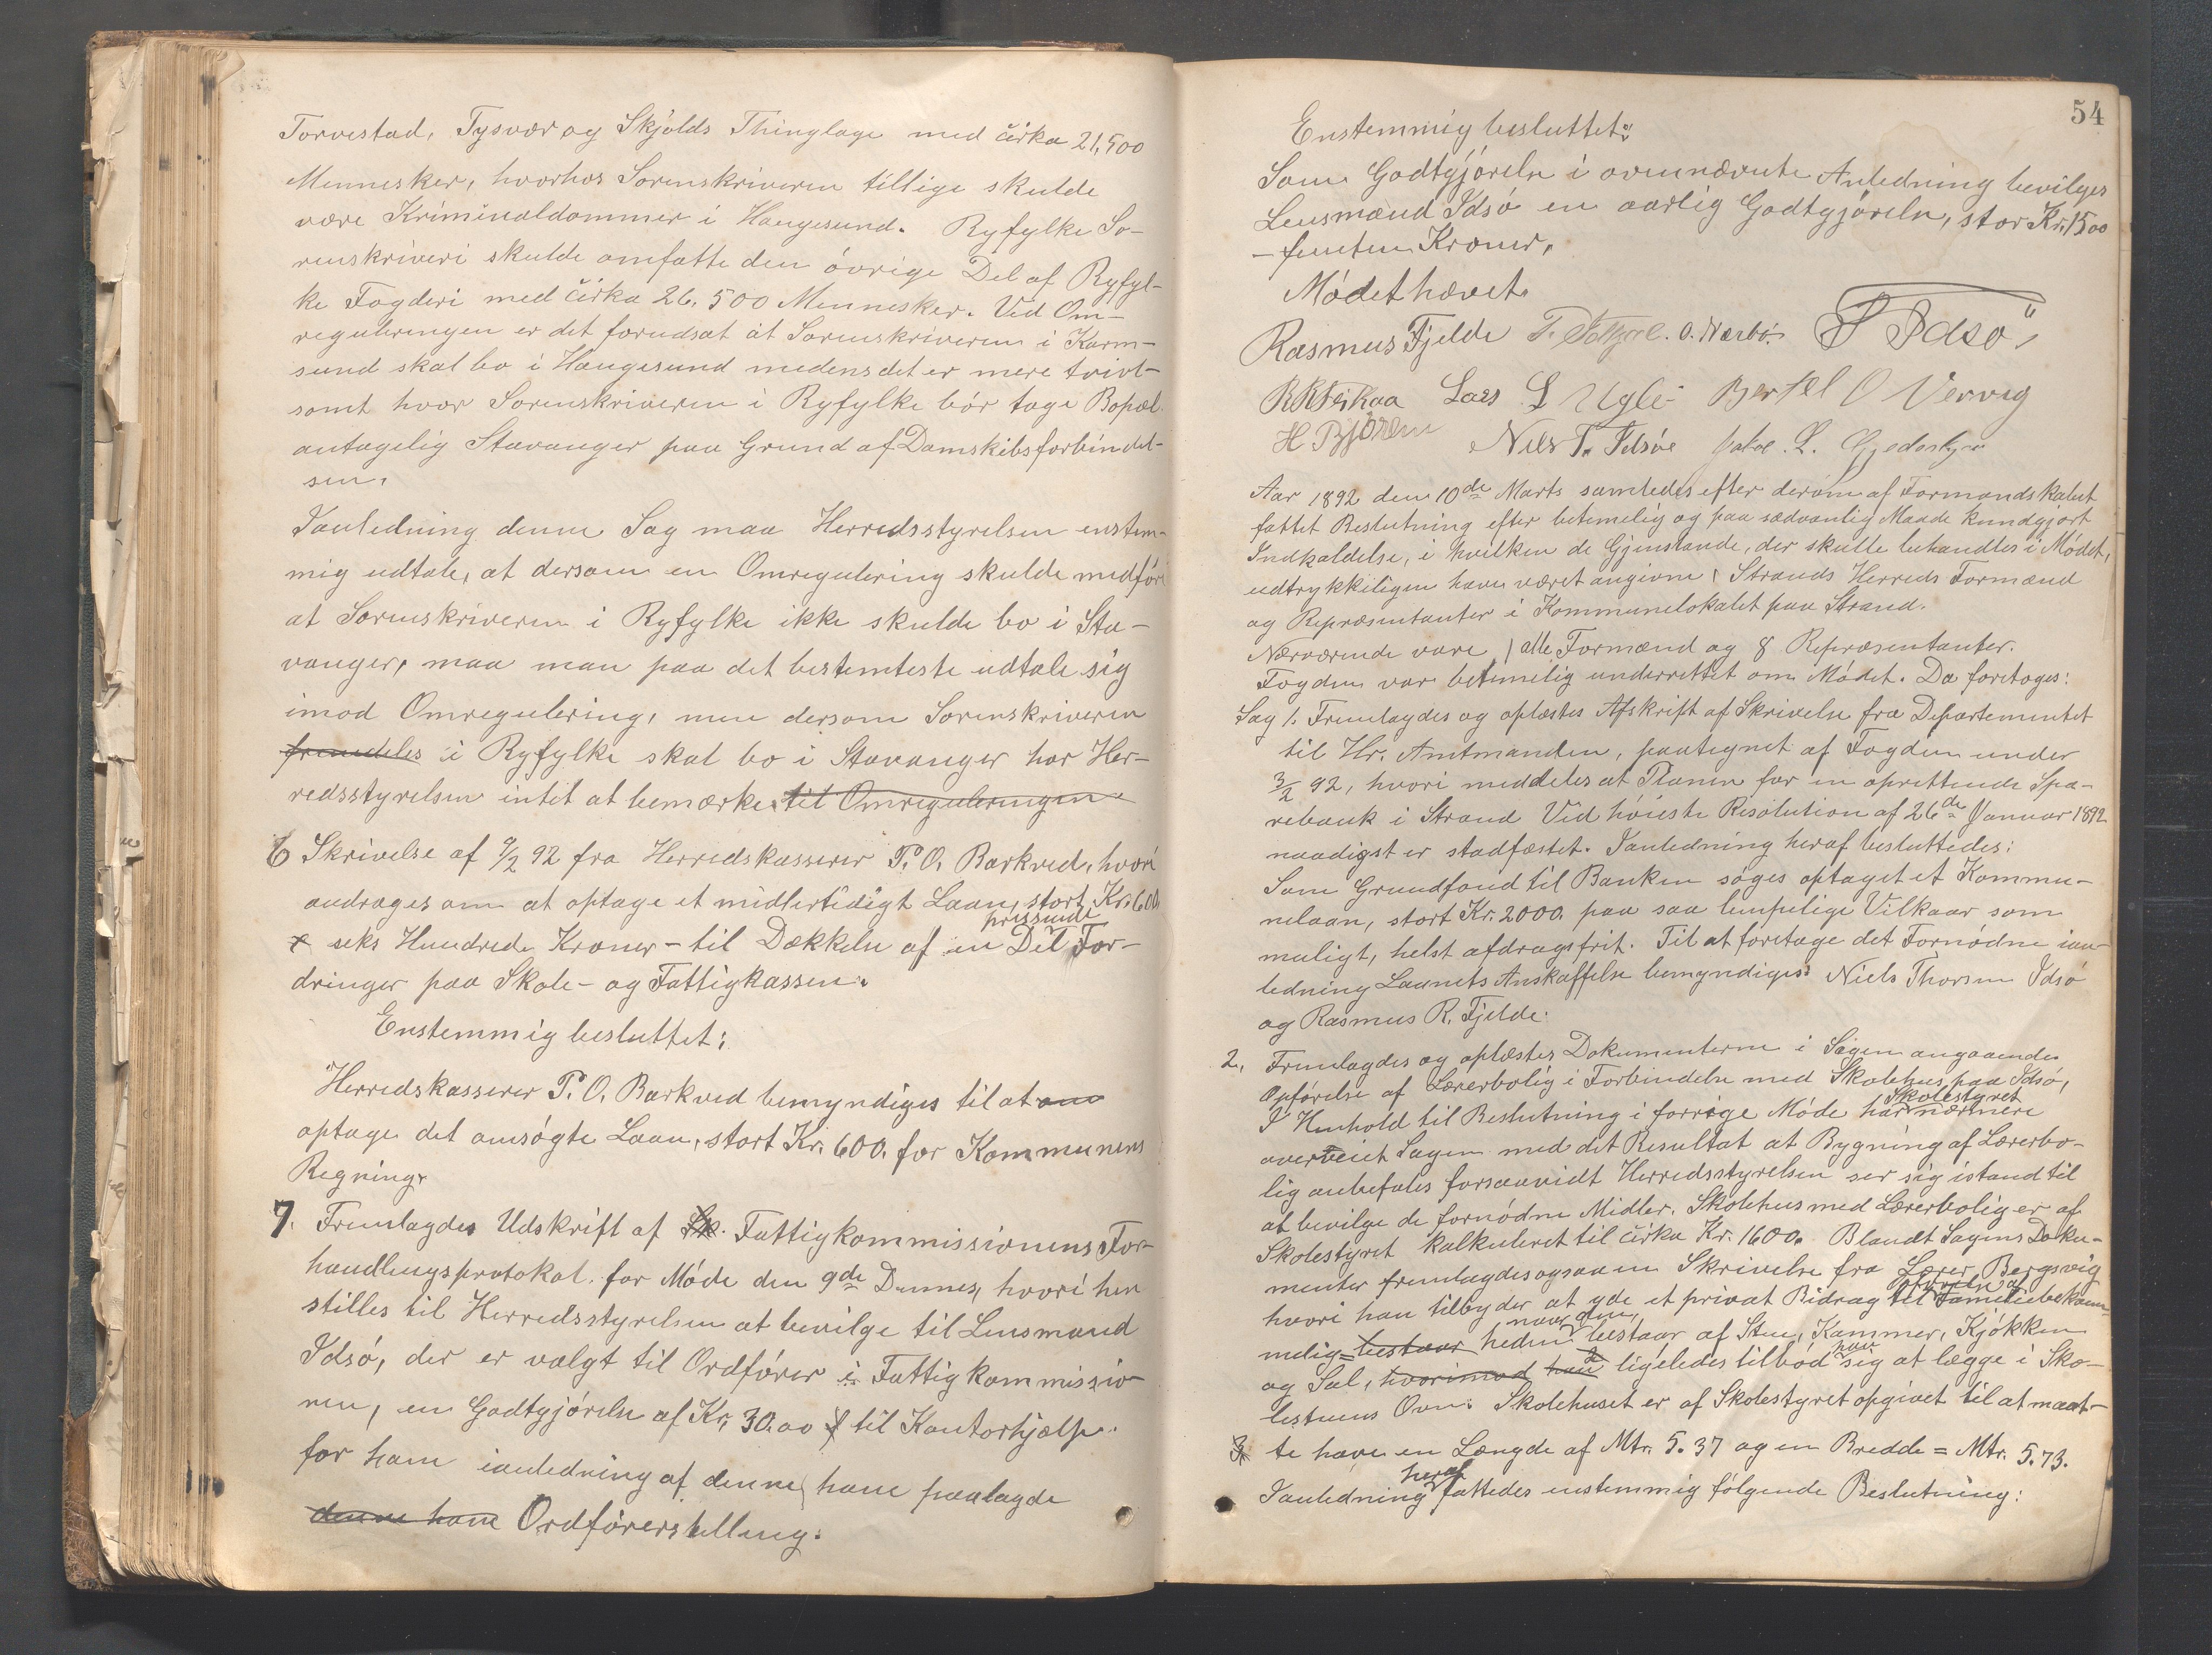 Torvestad, Tysvær og Skjolds Thinglage med cirka 21,500
Mennesker, hvorhos Sorenskriveren tillige skulde
være Kriminaldommer i Haugesund. Ryfylke So-
renskriveri skulde omfatte den óvrige Del af Ryfyl-
ke Fogderi med cirka 26,500 Mennesker. Ved Om-
reguleringen er det forudsat at Sorenskriveren i Karm-
sund skal bo i Haugesund medens det er mere tvivl-
somt hvor Sorenskriveren i Ryfylke bór tage Bopæl
antagelig Stavanger paa Grund af Damskibsforbindel-
sen.
Ianledning denne Sag maa Herredsstyrelsen enstem-
mig udtale, at dersom en Omregulering skulde medfór
at Sorenskriveren i Ryfylke ikke skulde bo i Sta-
vanger, maa man paa det bestemteste udtale sig
imod Omregulering, men dersom Sorenskriveren
fremdeles i Ryfylke skal bo i Stavanger har Her-
redsstyrelsen intet at bemærke til Omreguleringen
6 Skrivelse af 9/2 92 fra Herredskasserer P. O. Barkved, hvori
andrages om at optage et midlertidigt Laan, stort Kr. 600
pressende
seks Hundrede Kroner - til Dækkelse af en Del For-
dringer paa Skole- og Fattigkassen.
Enstemmig besluttet:
Herredskasserer P. O. Barkved bemyndiges til at om
optage det omsógte Laan, stort Kr. 600. for Kommunens
Regning.
7. Fremlagdes Udskrift af Sk. Fattigkommissionens For-
handlingsprotokol for Móde den 9de Dennes, hvori hen
stilles til Herredsstyrelsen at bevilge til Lensmand
Idsó, der er valgt til Ordfórer i Fattigkommissio-
nen, en Godtgjórelse af Kr. 30.00 til Kontorhjælp
for ham ianledning af denne ham paalagde
denne ham Ordfórerstilling.
54
Enstemmig besluttet:
Som Godtgjórelse i ovennævnte Anledning bevilges
Lensmand Idsó en aarlig Godtgjórelse, stor Kr. 1500
- femten Kroner.
Módet hævet.
Rasmus Fjelde O. Nærbó. Idsó
Lars L Bertel O Vervig
H Bjóren Niels T. Idsóe
Aar 1892 den 10de Marts samledes efter derom af Formandskabet
fattet Beslutning efter betimelig og paa sædvanlig Maade kundgjort
Indkaldelse, i hvilken de Gjenstande, der skulle behandles i Módet,
udtrykkeligen have været angivne, Strands Herreds Formænd
og Repræsentanter i Kommunelokalet paa Strand.
Nærværende vare alle Formænd og 8 Repræsentanter.
Fogden var betimelig underrettet om Módet. Da foretoges:
Sag 1. Fremlagdes og oplæstes Afskrift af Skrivelse fra Departementet
til Hr. Amtmanden, paategnet af Fogden under
3/2 92, hvori meddeles at Planen for en oprettende Spa-
rebank i Strand Ved hóieste Resolution af 26de Januar 1892
naadigst er stadfæstet. Ianledning heraf besluttedes:
Som Grundfond til Banken sóges optaget et Kommu-
nelaan, stort Kr. 2000. paa saa lempelige Vilkaar som
muligt, helst afdragsfrit. Til at foretage det Fornódne ian-
ledning Laanets Anskaffelse bemyndiges Niels Thorsen Idsó
og Rasmus R. Fjelde.
2. Fremlagdes og oplæstes Dokumenterne i Sagen angaaende
Opfórelse af Lærerbolig i Forbindelse med Skolehus paa Idsó,
Skolestyret
I Henhold til Beslutning i forrige Móde har nærmere
overveiet Sagen med det Resultat at Bygning af Lærerbo-
lig anbefales forsaavidt Herredsstyrelsen ser sig istand til
at bevilge de fornódne Midler. Skolehus med Lærerbolig er af
Skolestyret kalkuleret til cirka Kr. 1600. Blandt Sagens Doku-
menter fremlagdes ogsaa en Skrivelse fra Lærer Bergsvig
hvori han tilbyder at yde et privat Bidrag til Familiebekvem-
melig bestaar heden bestaar af Stue, Kammer, Kjókken
og Sal, hvorimod han ligeledes tilbód sig at lægge i Sko-
lestuens Ovn. Skolehuset er af Skolestyret opgivet til at maat-
te have en Længde af Mtr. 5.37 og en Bredde = Mtr. 5.73.
heraf
Ianledning fattedes enstemmig fólgende Beslutning: